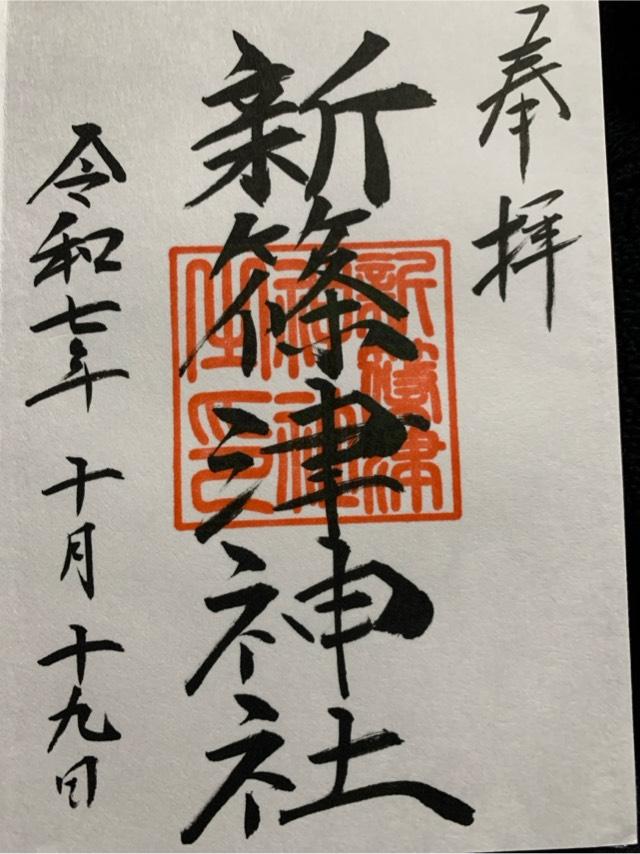 奉拝
新篠津神社
新篠津
神社神
社印
令和七年 十月 十九日